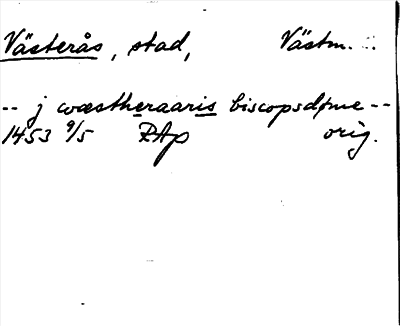 Västerås, stad, Västm.
-- j wæstheraaris biscopsdøme --
1453 9/5 RAp orig.